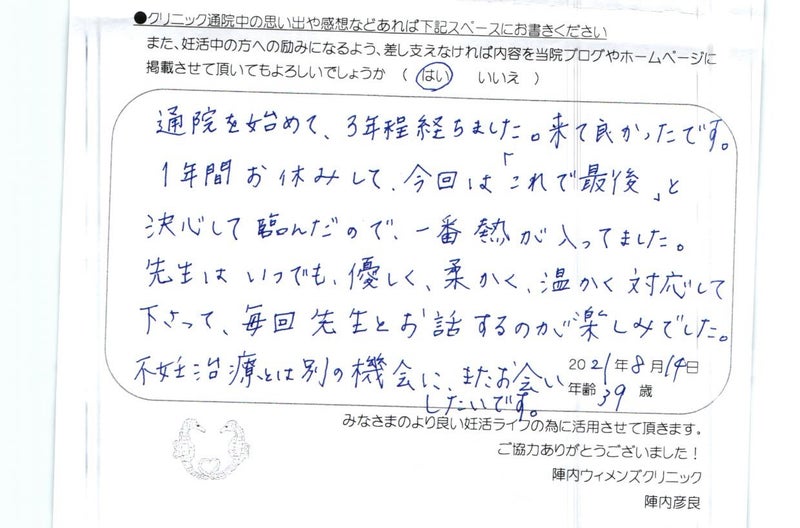 ●クリニック通院中の思い出や感想などあれば下記スペースにお書きください
また、妊活中の方への励みになるよう、差し支えなければ内容を当院ブログやホームページに
掲載させて頂いてもよろしいでしょうか （ はい　いいえ ）
通院を始めて、3年程経ちました。来て良かったです。
1年間お休みして、今回は「これで最後」と
決心して臨んだので、一番熱が入ってました。
先生はいつでも、優しく、柔かく、温かく対応して
下さって、毎回先生とお話するのが楽しみでした。
不妊治療とは別の機会に、またお会い
したいです。
2021年8月14日
年齢 39 歳
みなさまのより良い妊活ライフの為に活用させて頂きます。
ご協力ありがとうございました！
陣内ウィメンズクリニック
陣内彦良